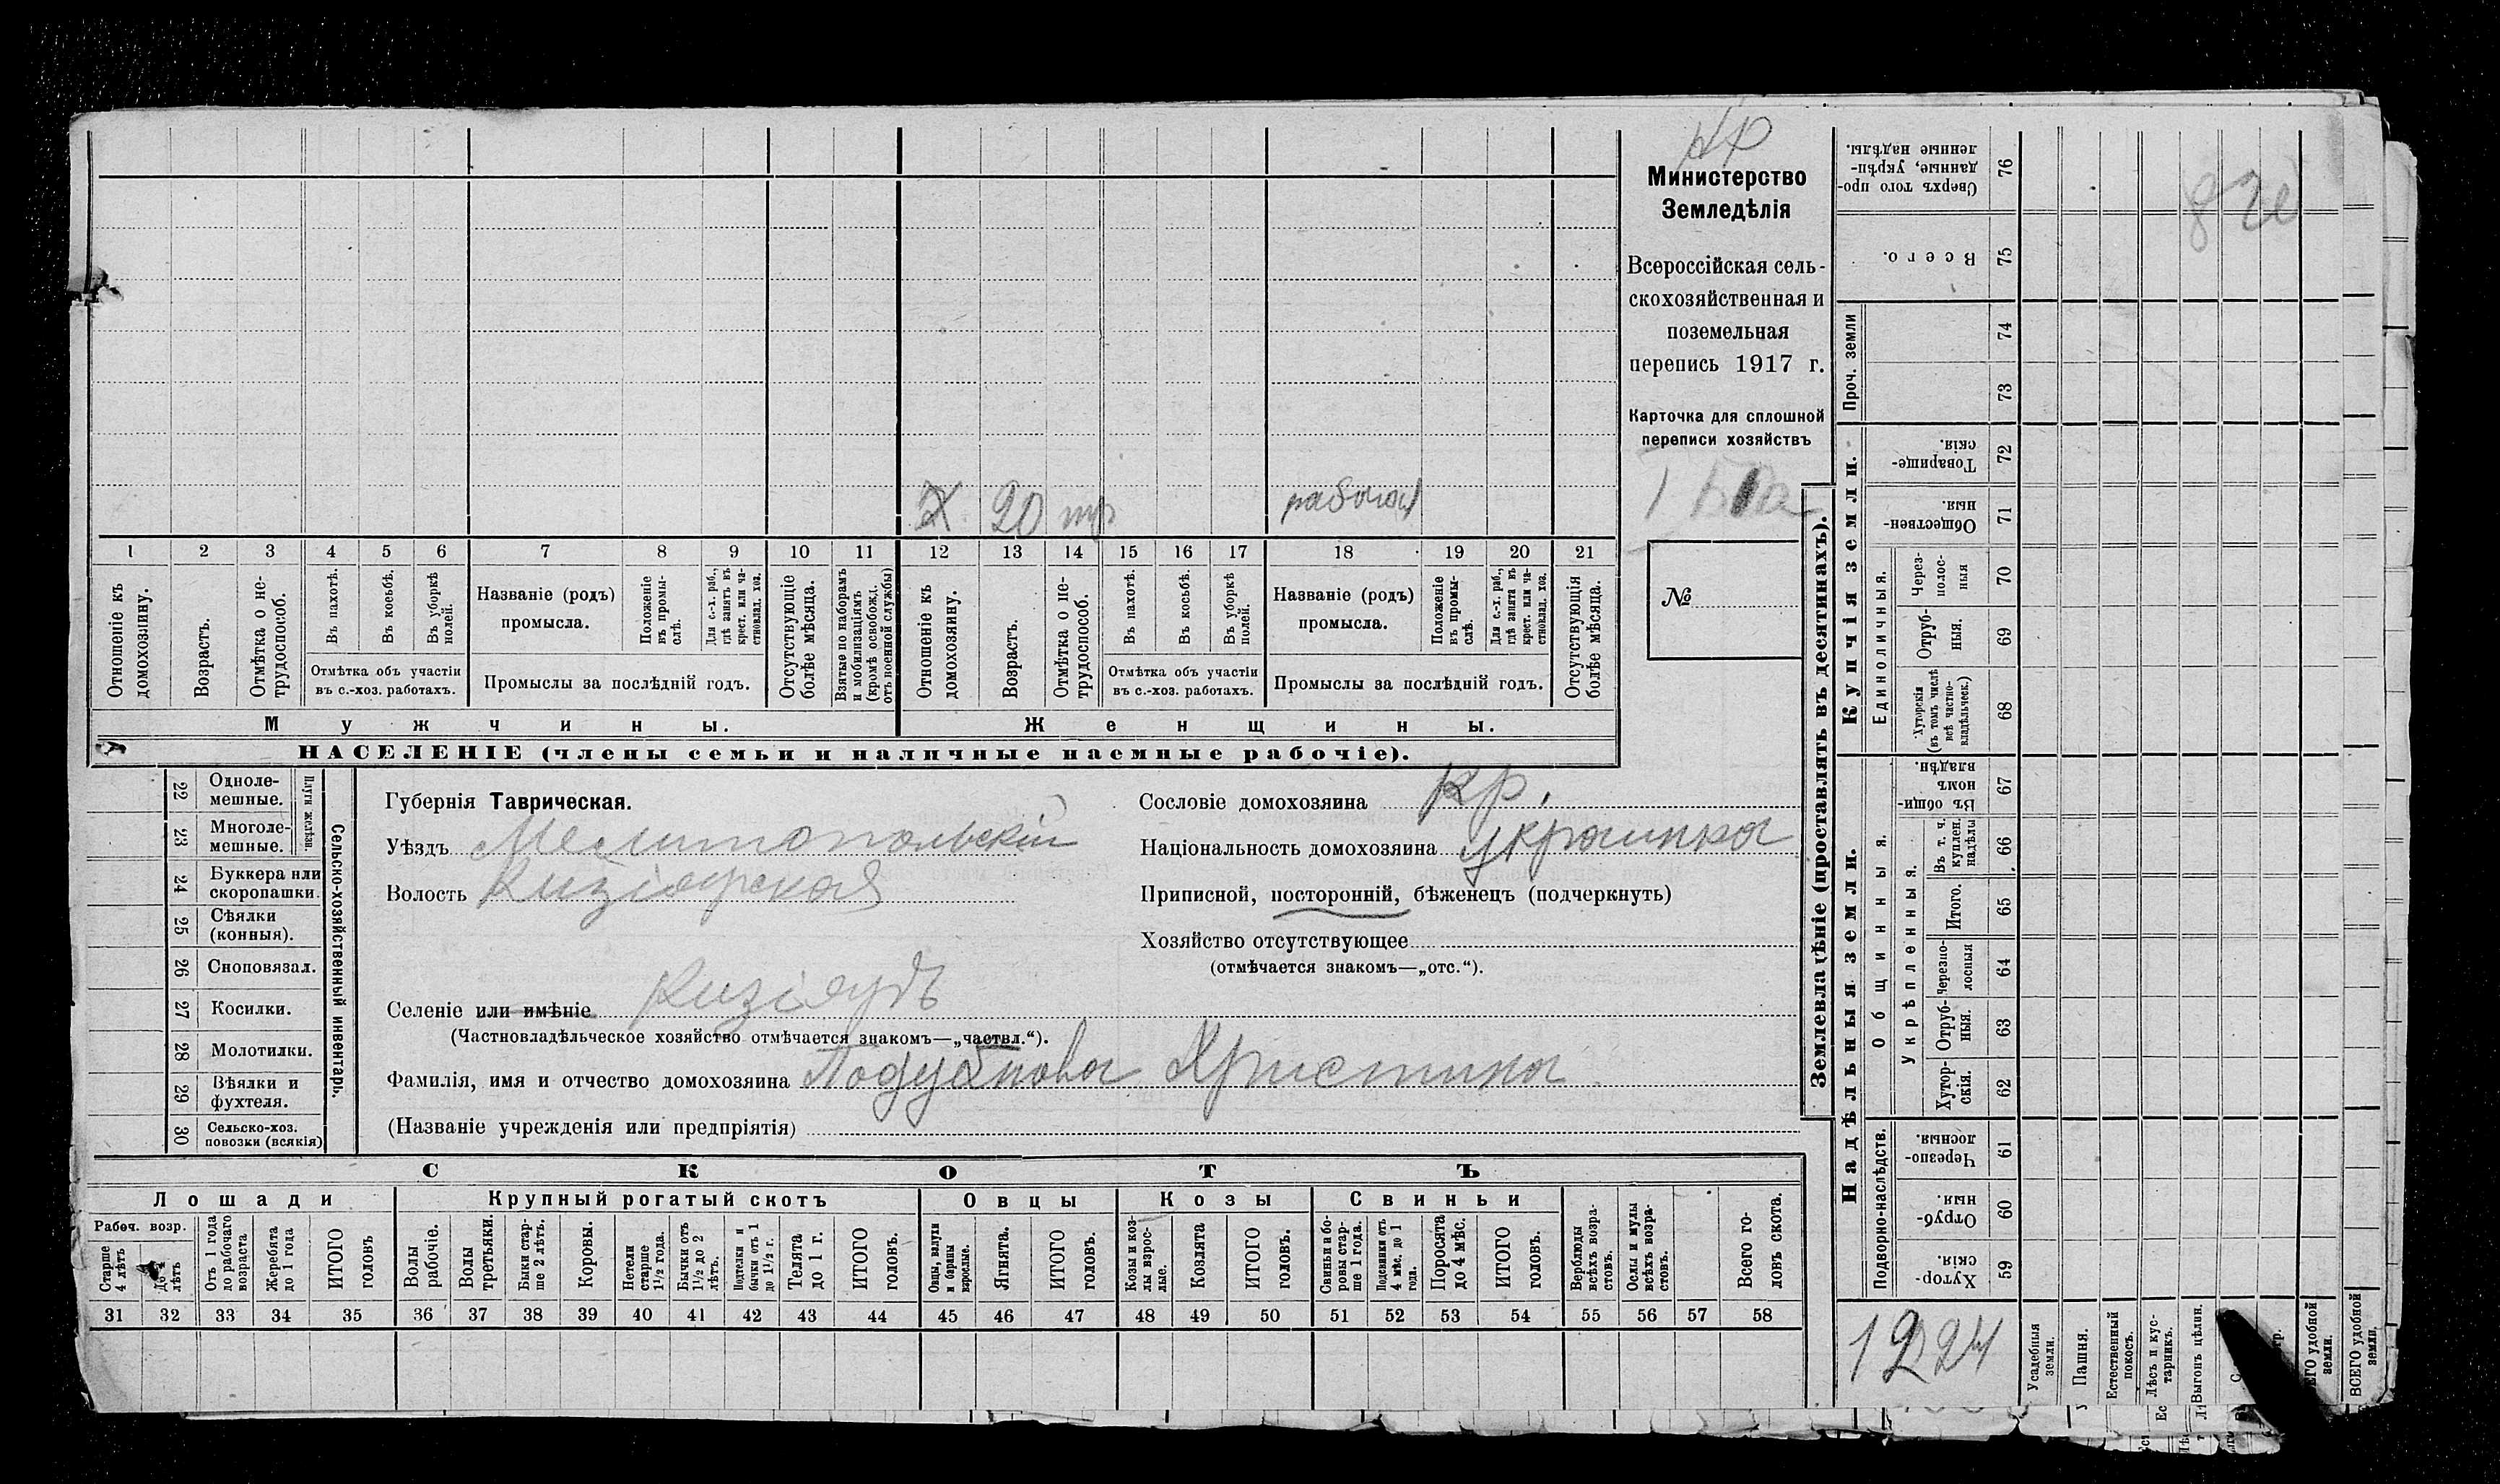 Министерство
Земледѣлія
Всероссійская сель-
скохозяйственная и
поземельная
перепись 1917 г.
Карточка для сплошной
переписи хозяйствъ
№
X 20 тр рабочая
1 2 3 4 5 6 7 8 9 10 11 12 13 14 15 16 17 18 19 20 21
Отношеніе къ домохозяину.
Возрастъ.
Отмѣтка о не-трудоспособ.
Въ пахотѣ.
Въ косьбѣ.
Въ уборкѣ полей.
Отмѣтка объ участіи
въ с.-хоз. работахъ.
Названіе (родъ)
промысла.
Положеніе въ промы-слѣ.
Для с.-х. раб., гдѣ занятъ въ крест. или ча-стновлад. хоз.
Промыслы за послѣдній годъ.
Отсутствующіе болѣе мѣсяца.
Взятые по наборамъ и мобилизаціямъ (кромѣ освобожд. отъ военной службы)
Отношеніе къ домохозяину.
Возрастъ.
Отмѣтка о не-трудоспособ.
Въ пахотѣ.
Въ косьбѣ.
Въ уборкѣ полей.
Отмѣтка объ участіи
въ с.-хоз. работахъ.
Названіе (родъ)
промысла.
Положеніе въ промы-слѣ.
Для с.-х. раб., гдѣ занята въ крест. или ча-стновлад. хоз.
Промыслы за послѣдній годъ.
Отсутствующія болѣе мѣсяца.
Мужчины.
Женщины.
НАСЕЛЕНІЕ (члены семьи и наличные наемные рабочіе).
Сельско-хозяйственный инвентарь.
Плуги желѣзн.
22 Одноле-мешные.
23 Многоле-мешные.
24 Буккера или скоропашки.
25 Сѣялки (конныя).
26 Сноповязал.
27 Косилки.
28 Молотилки.
29 Вѣялки и фухтеля.
30 Сельско-хоз. повозки (всякія)
Губернія Таврическая.
Уѣздъ Мелитопольскій
Волость Кизіярская
Селеніе или имѣніе Кизіяръ
(Частновладѣльческое хозяйство отмѣчается знакомъ—„частвл.“).
Фамилія, имя и отчество домохозяина Поддубнова Христина
(Названіе учрежденія или предпріятія)
Сословіе домохозяина кр.
Національность домохозяина украинка
Приписной, посторонній, бѣженецъ (подчеркнуть)
Хозяйство отсутствующее
(отмѣчается знакомъ—„отс.“).
СКОТЪ
Лошади
Крупный рогатый скотъ
Овцы
Козы
Свиньи
Рабоч. возр.
Старше 4 лѣтъ
До 4 лѣтъ
Отъ 1 года до рабочаго возраста
Жеребята до 1 года
ИТОГО головъ
Волы рабочіе.
Волы третьяки.
Быки стар-ше 2 лѣтъ.
Коровы.
Нетели старше 1½ года.
Бычки отъ 1½ до 2 лѣтъ.
Подтелки и бычки отъ 1 до 1½ г.
Телята до 1 г.
ИТОГО головъ.
Овцы, валухи и бараны взрослые.
Ягнята.
ИТОГО головъ.
Козы и коз-лы взрос-лые.
Козлята
ИТОГО головъ.
Свиньи и бо-ровы стар-ше 1 года.
Подсвинки отъ 4 мѣс. до 1 года.
Поросята до 4 мѣс.
ИТОГО головъ.
Верблюды всѣхъ возра-стовъ.
Ослы и мулы всѣхъ возра-стовъ.
Всего го-ловъ скота.
31 32 33 34 35 36 37 38 39 40 41 42 43 44 45 46 47 48 49 50 51 52 53 54 55 56 57 58
Землевладѣніе (проставлять въ десятинахъ).
Купчія земли.
Надѣльныя земли.
Сверхъ того про-данные, укрѣп-ленные надѣлы. 76
Всего. 75
Проч. земли 74
73
Товарище-скія. 72
Обществен-ныя. 71
Единоличныя.
Через-полос-ныя 70
Отруб-ныя. 69
Хуторскія (въ томъ числѣ всѣ частно-владѣльческ.) 68
Общинныя.
Въ общи-номъ владѣн. 67
Укрѣпленныя.
Въ т. ч. куплен. надѣлы 66
Итого. 65
Черезпо-лосныя 64
Отруб-ныя. 63
Хутор-скія. 62
Подворно-наслѣдств.
Черезпо-лосныя. 61
Отруб-ныя. 60
Хутор-скія. 59
1224
Усадебныя земли.
Пашня.
Естественный покосъ.
Лѣсъ и кус-тарникъ.
Выгонъ цѣлин.
ВСЕГО удобной земли.